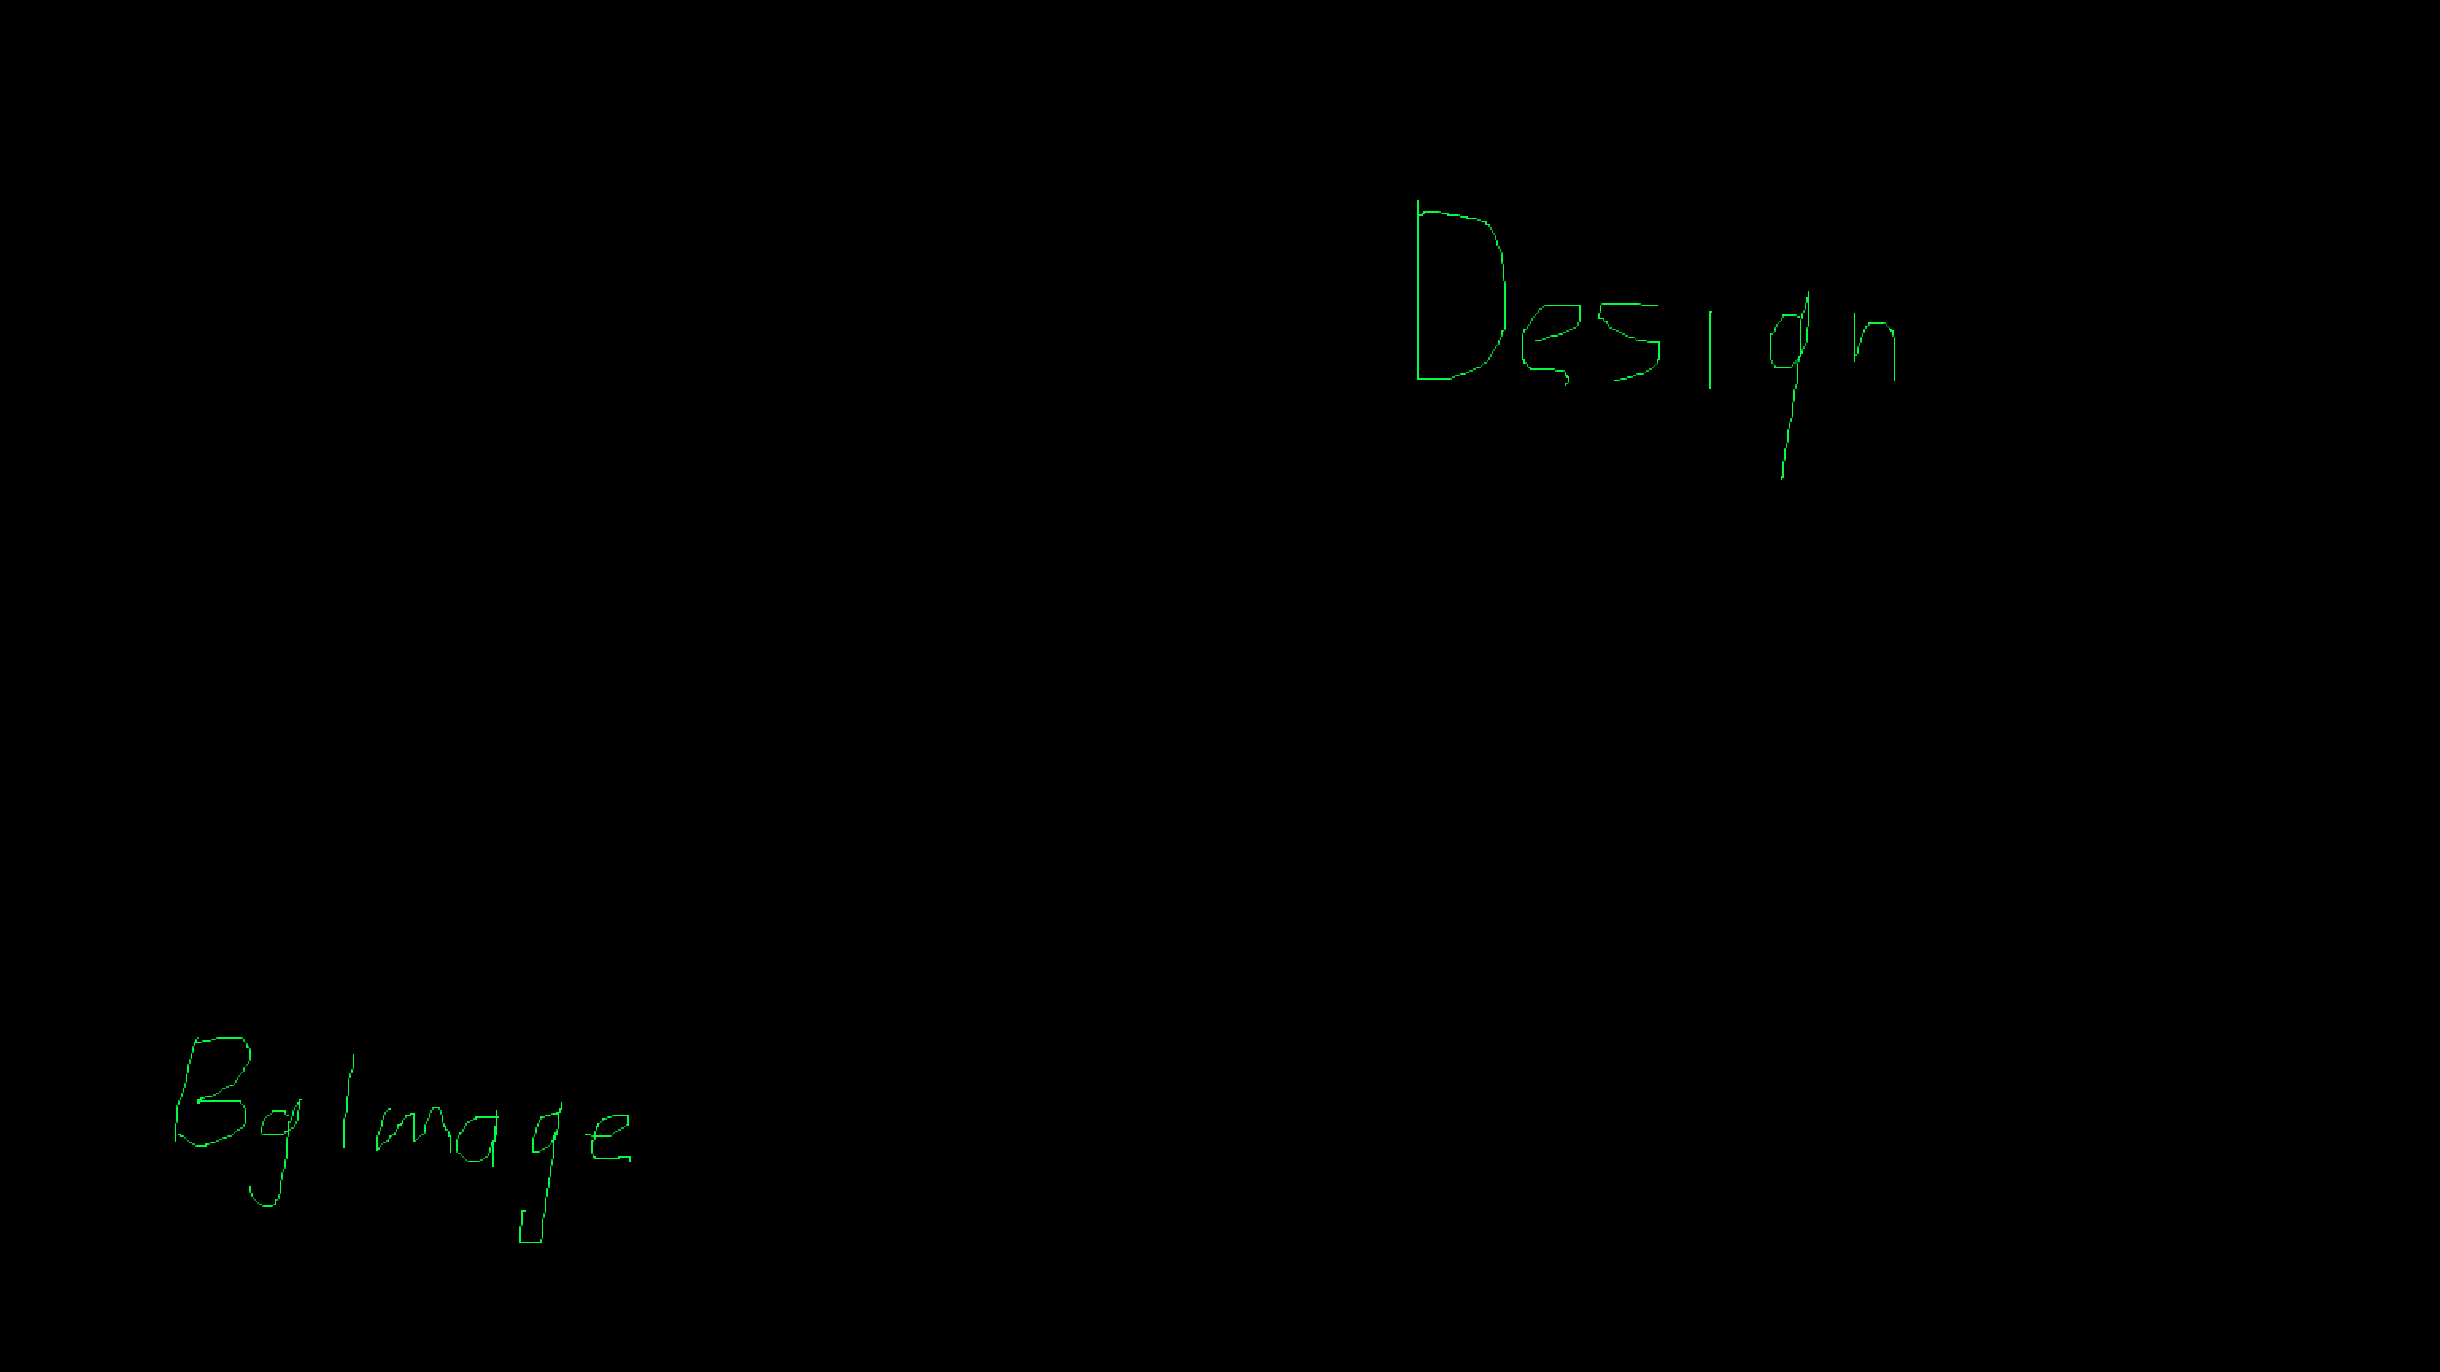 Design
Bg Image